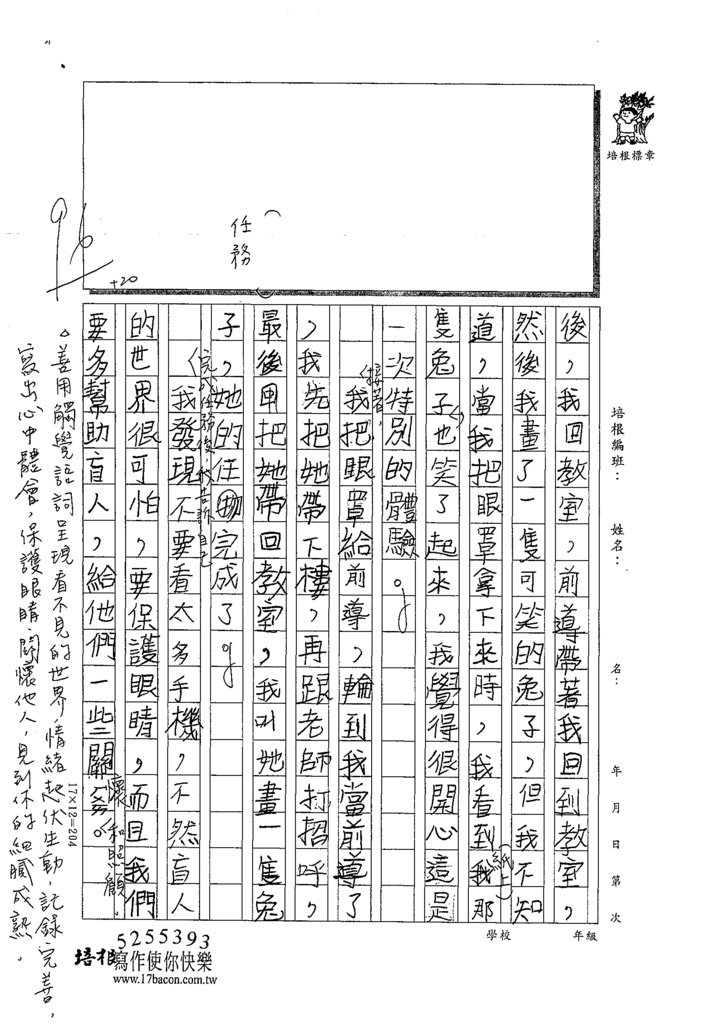 培根標章
96
+20
任務
培根編班：
姓名：
名：
年 月 日 第 次
後，我回教室，前導帶著我回到教室，
然後我畫了一隻可笑的兔子，但我不知
道，當我把眼罩拿下來時，我看到我那
(紙上)
隻兔子也笑了起來，我覺得很開心這是
一次特別的體驗。
接著，
我把眼罩給前導，輪到我當前導了
，我先把她帶下樓，再跟老師打招呼，
最後再把她帶回教室，我叫她畫一隻兔
子，她的任務完成了。
完成任務後，我告訴自己
我發現不要看太多手機，不然盲人
的世界很可怕，要保護眼睛，而且我們
要多幫助盲人，給他們一些關
懷和照顧。
17×12=204
。善用觸覺詞語呈現看不見的世界，情緒起伏生動，記錄完善，
寫出心中體會，保護眼睛、關懷他人，見到你的細膩成熟。
學校
年級
5255393
培根寫作使你快樂
www.17bacon.com.tw